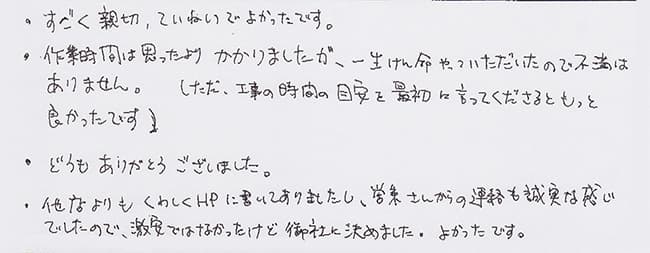 ・すごく親切、ていねいでよかったです。
・作業時間は思ったよりかかりましたが、一生けん命やっていただいたので不満は
ありません。 しただ、工事の時間の目安を最初に言ってくださるともっと
良かったです」
・どうもありがとうございました。
・他店よりもくわしくHPに書いてありましたし、営業さんからの連絡も誠実な感じ
でしたので、激安ではなかったけど御社に決めました。よかったです。